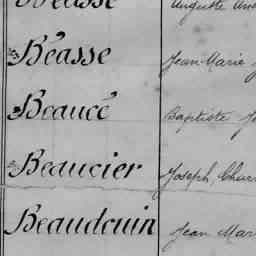 Béasse Jean Marie
Beaucé Baptiste
Beaucier Joseph
Beaudouin Jean Mar